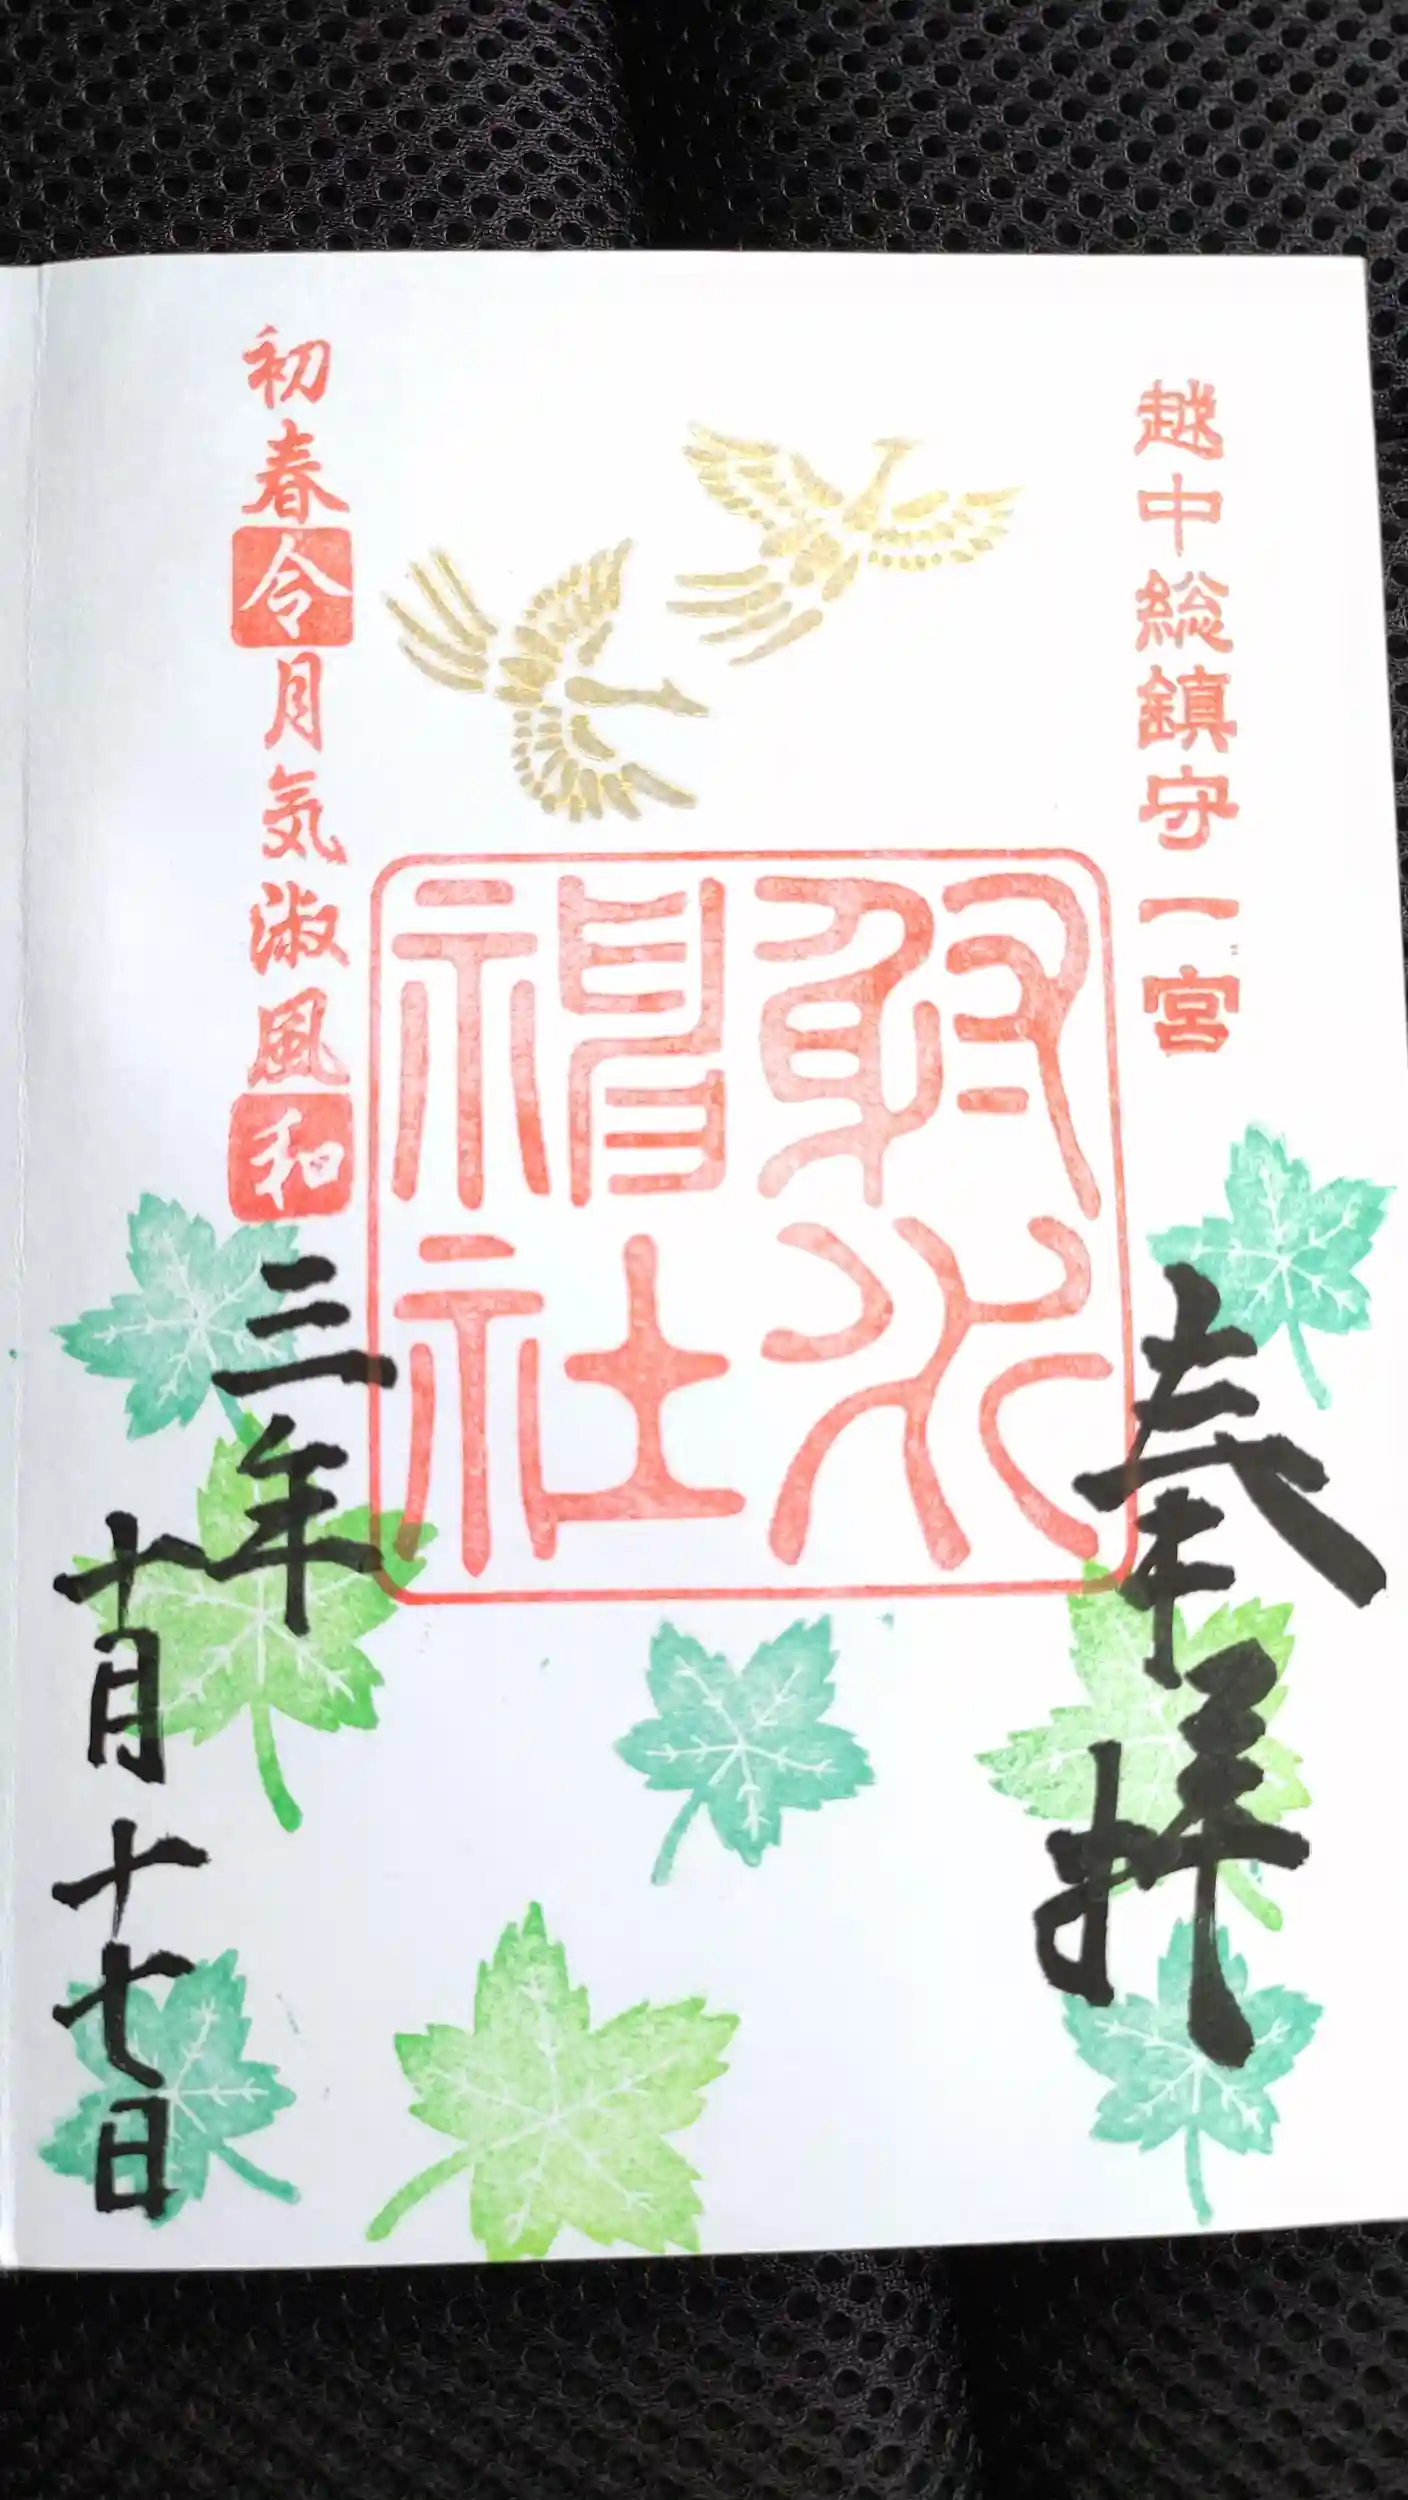 越中総鎮守一宮
奉拝
射水
神社
初春令月気淑風和三年
十月十七日